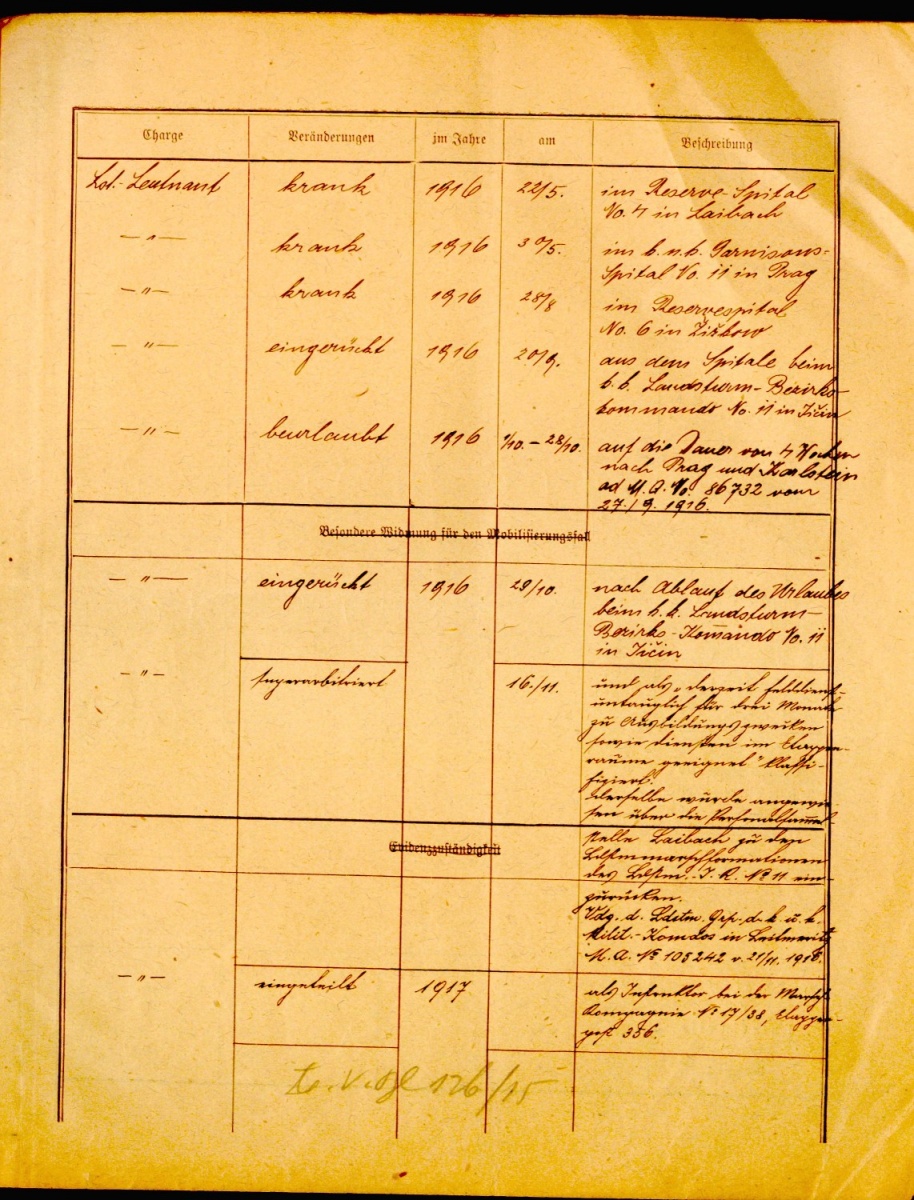 Charge Veränderungen im Jahre am Beschreibung
Lst.-Leutnant krank 1916 22/5. im Reserve Spital
No. 4 in Laibach
— " — krank 1916 30/5. im k. u. k. Garnisons-
Spital No. 11 in Prag
— " — krank 1916 28/8 im Reservespital
No. 6 in Žižkow
— " — eingerückt 1916 20/9. aus dem Spitale beim
k. k. Landsturm-Bezirks-
kommando No. 11 in Jičin
— " — beurlaubt 1916 1/10. – 28/10. auf die Dauer von 4 Wochen
nach Prag und Karlstein
ad M. A. No. 86732 vom
27./9. 1916.
Besondere Widmung für den Mobilisierungsfall
— " — eingerückt 1916 29/10. nach Ablauf des Urlaubes
beim k. k. Landsturm-
Bezirks-Kom̄ando No. 11
in Jičin
— " — superarbitriert 16./11. und als „derzeit felddienst-
untauglich für drei Monate
zu Ausbildungszwecken
sowie diensten im Etappen-
raume geeignet" klassi-
fiziert.
derselbe wurde angewie-
sen über die Personalsam̄el-
stelle Laibach zu den
Evidenzzuständigkeit
Ldstmmarschformationen
des Ldstm.-I. R. No 11 ein-
zurücken.
Vdg. d. Ldstm. Grp. d. k. u. k.
Milit.-Komdos in Leitmeritz
M. A. No 105242 v. 21/11. 1916.
— " — eingeteilt 1917 als Instruktor bei der Marsch-
Kompagnie No 17/38, Etappen-
post 356.
126/15